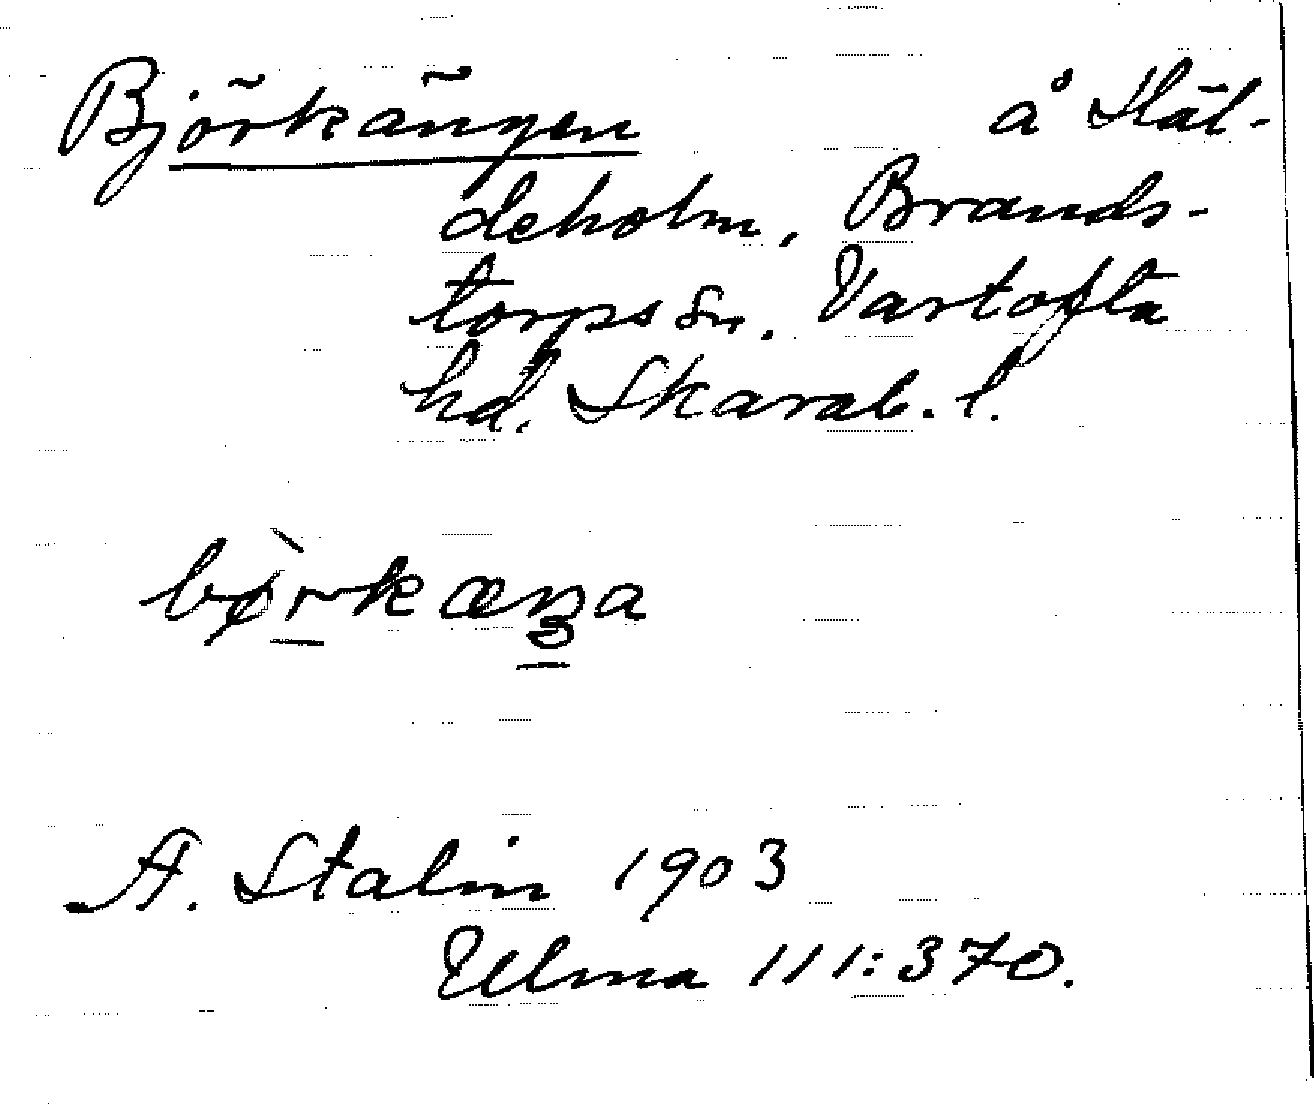 Björkängen å Häl-
deholm, Brands-
torps sn. Vartofta
hd. Skarab. l.
bø̀rkæŋa
A. Stalin 1903
Ulma 111:370.